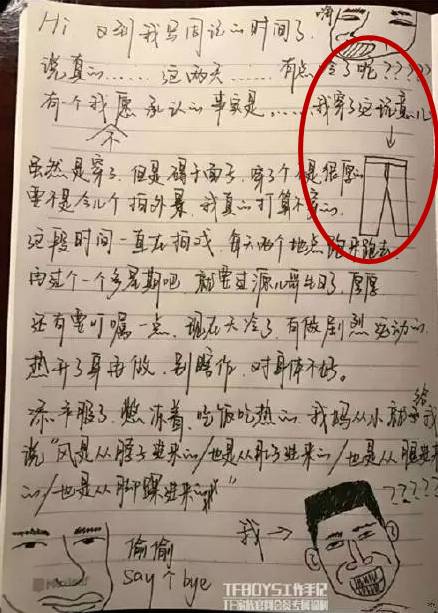 Hi 又到我写周记的时间了.
嗨
说真的......这两天......有点冷了呢????
有一个我愿承认的事实是......我穿了这玩意儿
不
虽然是穿了,但是碍于面子,穿了个不是很厚的
要不是今儿个拍外景,我真的打算不穿的.
这段时间一直在拍戏,每天两个地点跑来跑去
再过个一个多星期吧 就要过源儿哥生日了,厚厚
还有要叮嘱一点,现在天冷了,有做剧烈运动的,
热开了身再做,别瞎作,对身体不好。
添衣服了,憋冻着,吃饭吃热的.我妈从小就给我
说"风是从脖子进来的/也是从肚子进来的/也是从腿进来
的/也是从脚踝进来的"
?????
我→
偷偷
say个bye
TFBOYS工作手记